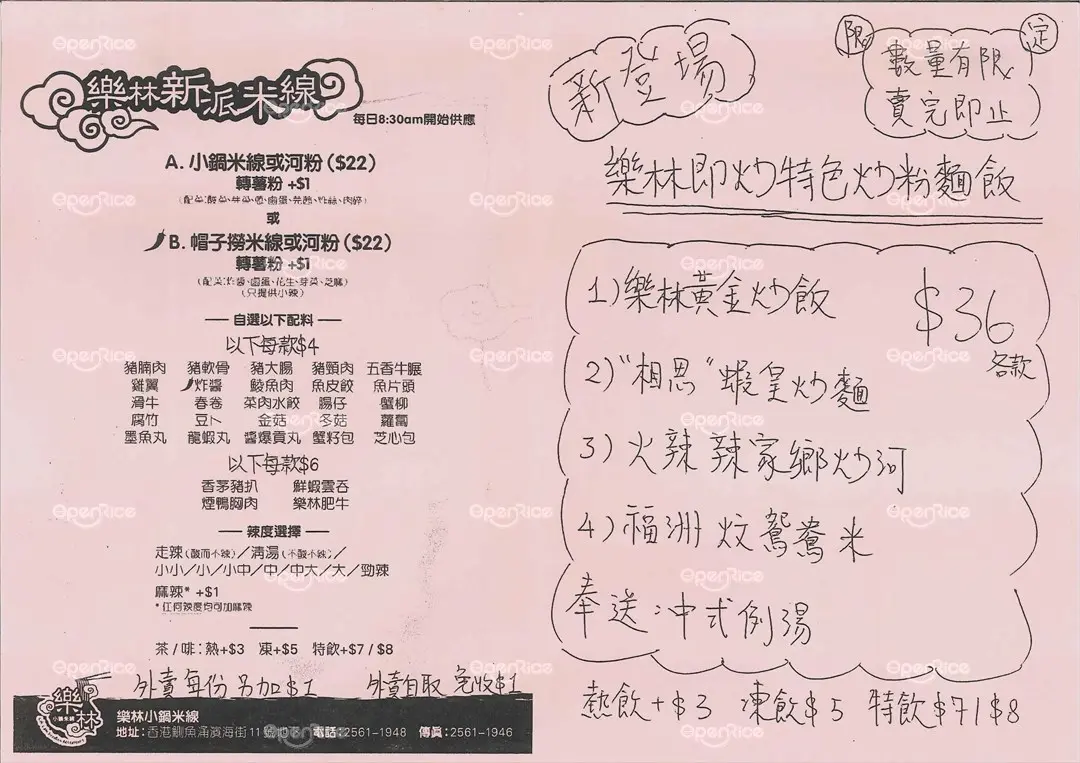 樂林新派米線
每日8:30am開始供應
A. 小鍋米線或河粉 ($22)
轉薯粉 +$1
或
B. 帽子撈米線或河粉 ($22)
轉薯粉 +$1
(配菜:炸醬、鹵蛋、花生、芽菜、芝麻)
(只提供小辣)
自選以下配料
以下每款$4
豬腩肉 豬軟骨 豬大腸 豬頸肉 五香牛𦟌
雞翼 炸醬 鯪魚肉 魚皮餃 魚片頭
滑牛 春卷 菜肉水餃 腸仔 蟹柳
腐竹 豆卜 金菇 冬菇 蘿蔔
墨魚丸 龍蝦丸 醬爆貢丸 蟹籽包 芝心包
以下每款$6
香茅豬扒 鮮蝦雲吞
煙鴨胸肉 樂林肥牛
辣度選擇
走辣(酸而不辣)/清湯(不酸不辣)/
小小/小/小中/中/中大/大/勁辣
麻辣* +$1
*任何辣度均可加麻辣
茶/啡:熱+$3 凍+$5 特飲+$7/$8
外賣每份另加$1 外賣自取 免收$1
樂林 小鍋米線
樂林小鍋米線
地址:香港鰂魚涌濱海街11號地下 電話:2561-1948 傳真:2561-1946
新登場
限定
數量有限
賣完即止
樂林即炒特色炒粉麵飯
1)樂林黃金炒飯 $36
各款
2)"相思"蝦皇炒麵
3)火辣辣家鄉炒河
4)福洲炆鴛鴦米
奉送:中式例湯
熱飲+$3 凍飲$5 特飲$7/$8
OpenRice